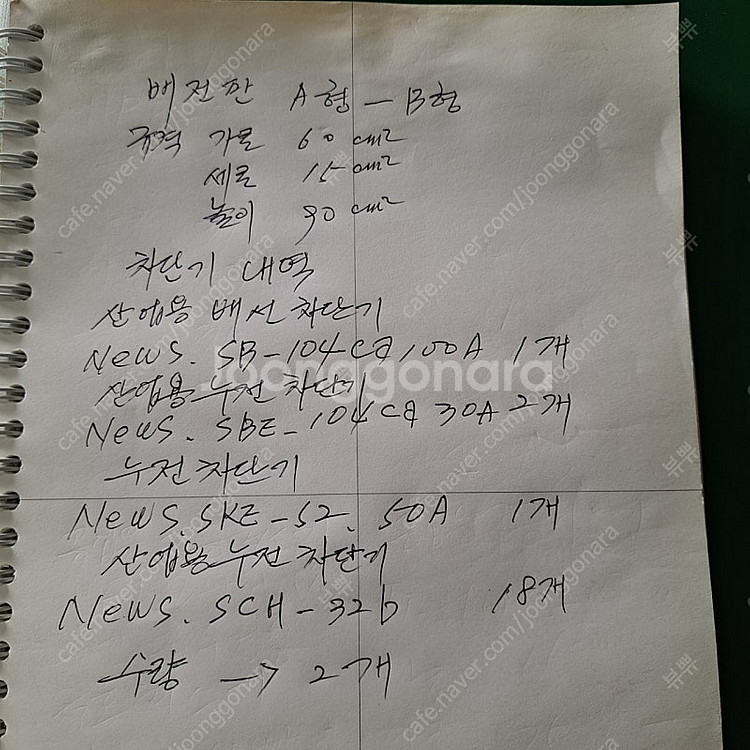 배전판 A형 - B형
규격 가로 60 cm²
세로 15 cm²
높이 90 cm²
차단기 내역
산업용 배선 차단기
News. SB-104ca 100A 1개
산업용 누전 차단기
News. SBE-104ca 30A 2개
누전 차단기
News. SKE-52. 50A 1개
산업용 누전 차단기
News. SCH-32b 18개
수량 → 2개
joonggonara
cafe.naver.com/joonggonara
뷰쀼